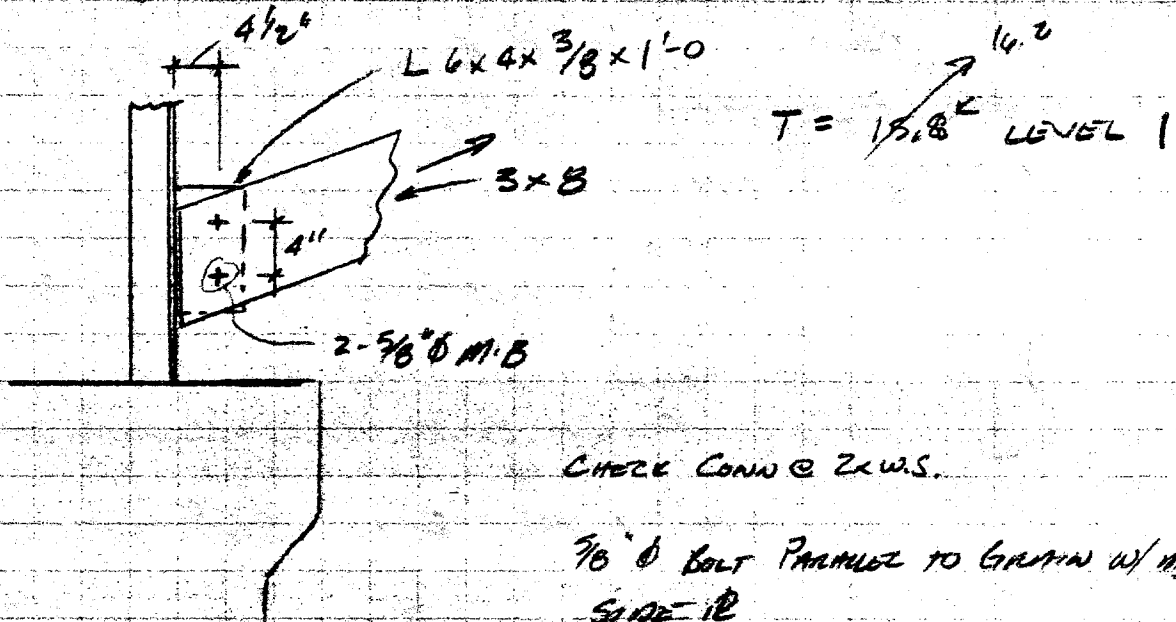 4 1/2"
L 6x4x 3/8 x 1'-0
16.2
T = 15.8ᴷ LEVEL 1
3x8
4"
2-5/8"ϕ M.B
CHECK CONN @ 2x W.S.
5/8"ϕ BOLT PARALLEL TO GRAIN W/
SIDE PL